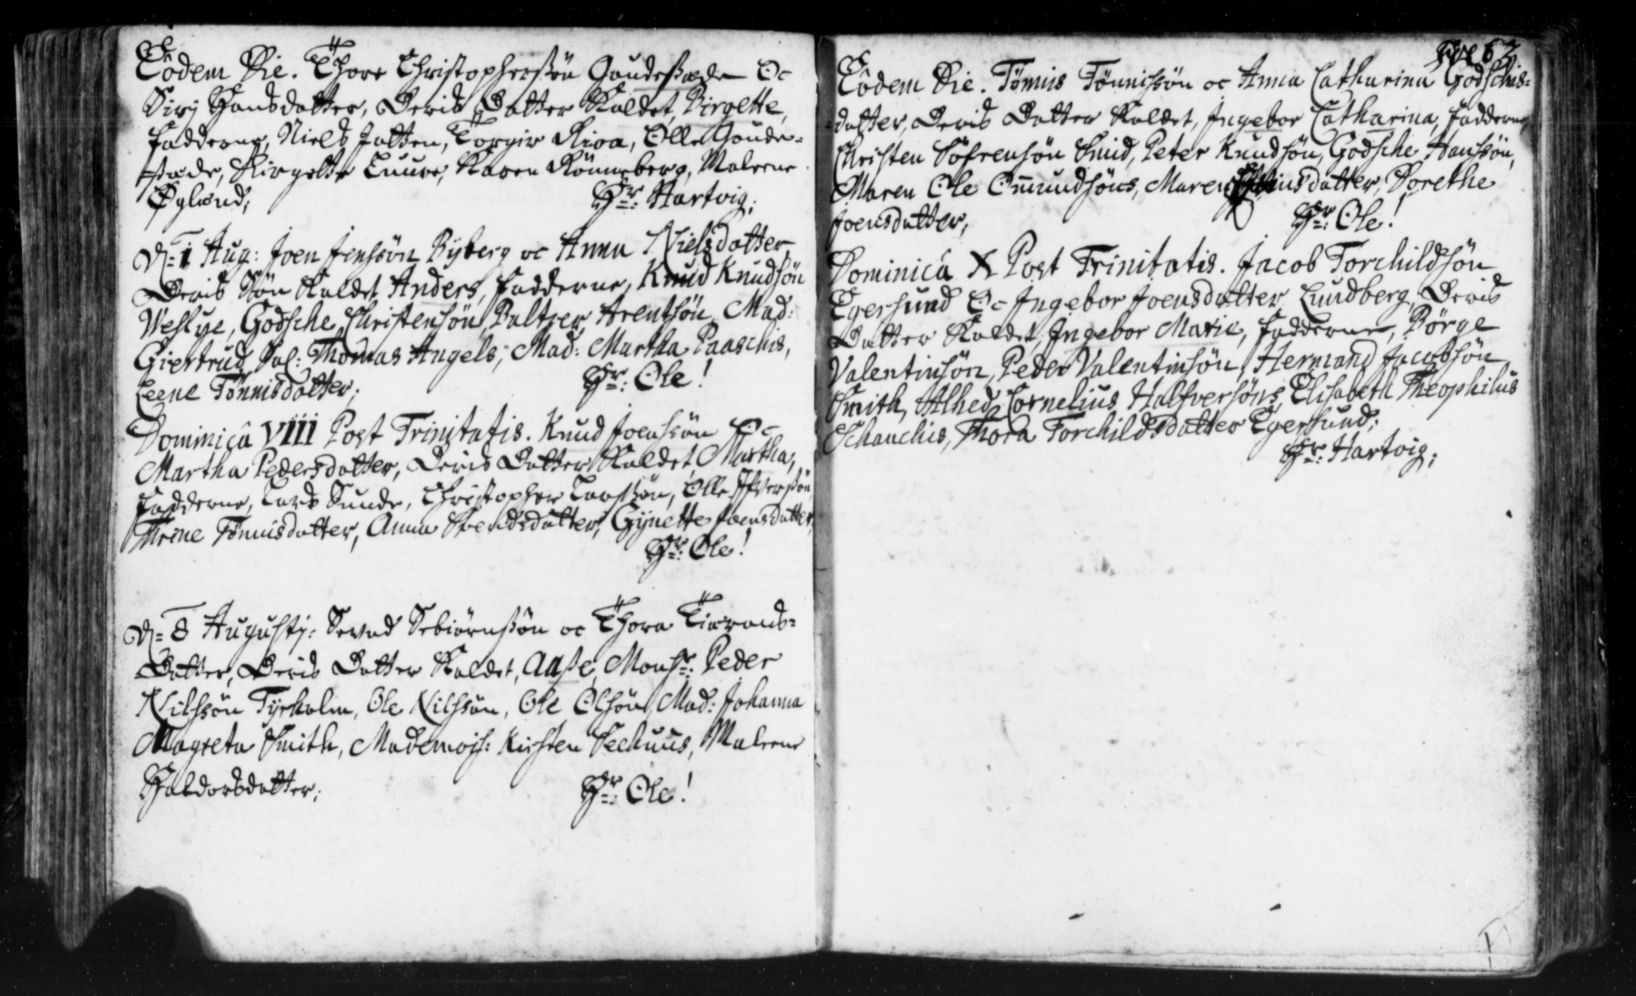 Eodem Die. Thore Christophersøn Gaudestæde Oc
Sirj Hansdatter, Deris Datter Kaldet, Birgette,
Fadderne, Niels Jatten, Torgir Riva, Olle Goude-
stæde, Birgette Luure, Karen Rönneberg, Maleene
Øglænd; Hr: Hartvig;
D: 1 Aug: Joen Jenssøn Byberg oc Anna Nielsdatter
Deris Søn Kaldet Anders, Fadderne, Knud Knudsøn
Weslye, Godsche Christensøn, Baltzer Arentsøn, Mad:
Giertrud Sal: Thomas Angels, Mad: Martha Paaschis,
Leene Tønnisdatter; Hr: Ole!
Dominicâ VIII Post Trinitatis. Knud Joenssøn Oc
Martha Pedersdatter, Deris Datter Kaldet, Martha,
Fadderne, Lars Sunde, Christopher Larssøn, Olle Ifversøn,
Threne Tønnisdatter, Anna Svendsdatter, Gynette Joensdatter,
Hr: Ole!
D: 8 Augusti: Sevad Sebiørnssøn oc Thora Tiærands-
Datter, Deris Datter Kaldet, Aaße, Monsr: Peder
Nilssøn Tyrholm, Ole Nilssøn, Ole Olsøn, Mad: Johanna
Magreta Smith, Mademois: Kirsten Sechuus, Maleene
Haldorsdatter; Hr: Ole!
62
Eodem Die. Tømis Tønnissøn oc Anna Catharina Godschis-
datter, Deris Datter Kaldet, Ingebor Catharina, Fadderne,
Christen Sofrensøn Smid, Peter Knudsøn, Godsche Hanssøn,
Maren Ole Omundsøns, Maren datter, Dorethe
Joensdatter, Hr: Ole!
Dominicâ X Post Trinitatis. Jacob Torchildsøn
Egersund Oc Ingebor Joensdatter Lundberg, Deris
Datter Kaldet, Ingebor Marie, Fadderne, Børge
Valentinsøn, Peder Valentinsøn, Hermand Jacobsøn
Smith, Alhed Cornelius Halfversøns, Elisabeth Theophilus
Schanchis, Thora Torchildsdatter Egersund;
Hr: Hartvig;